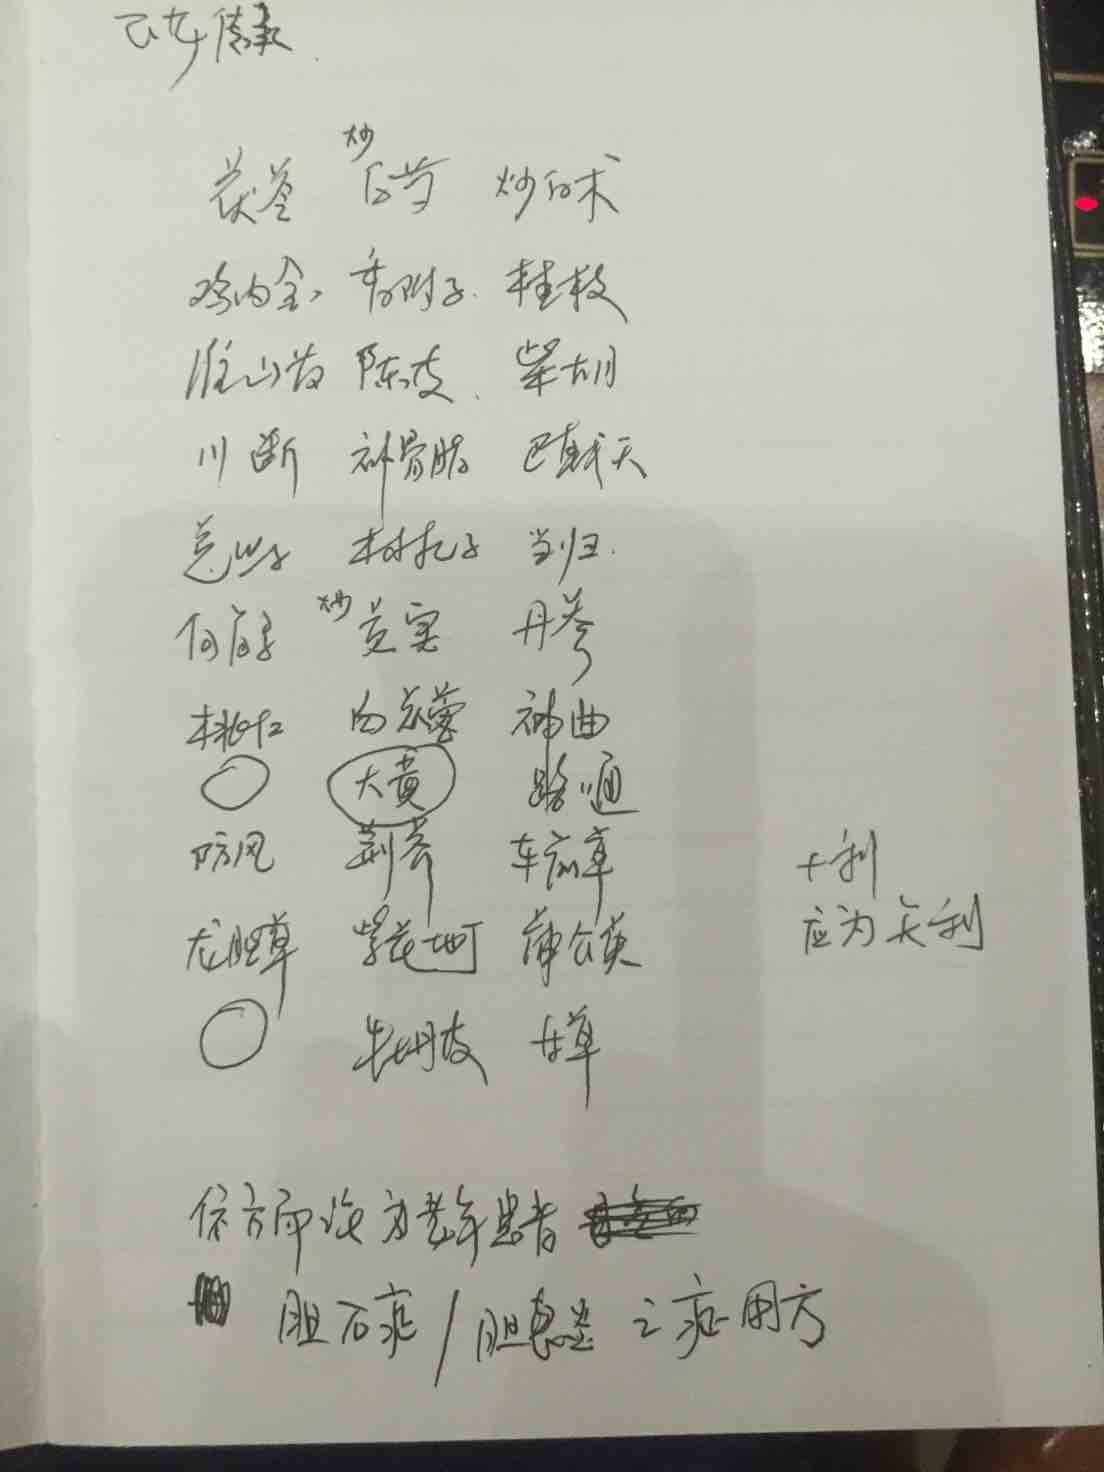 传承
茯苓 炒白芍 炒白术
鸡内金 香附子 桂枝
淮山药 陈皮 柴胡
川断 补骨脂 巴戟天
菟丝子 枸杞子 当归
何首乌 炒芡实 丹参
桃仁 肉苁蓉 神曲
大黄 路路通
防风 荆芥 车前草
十利
应为失利
龙胆草 紫花地丁 蒲公英
牡丹皮 甘草
依方而论为老年患者
胆石症/胆息肉之症用方